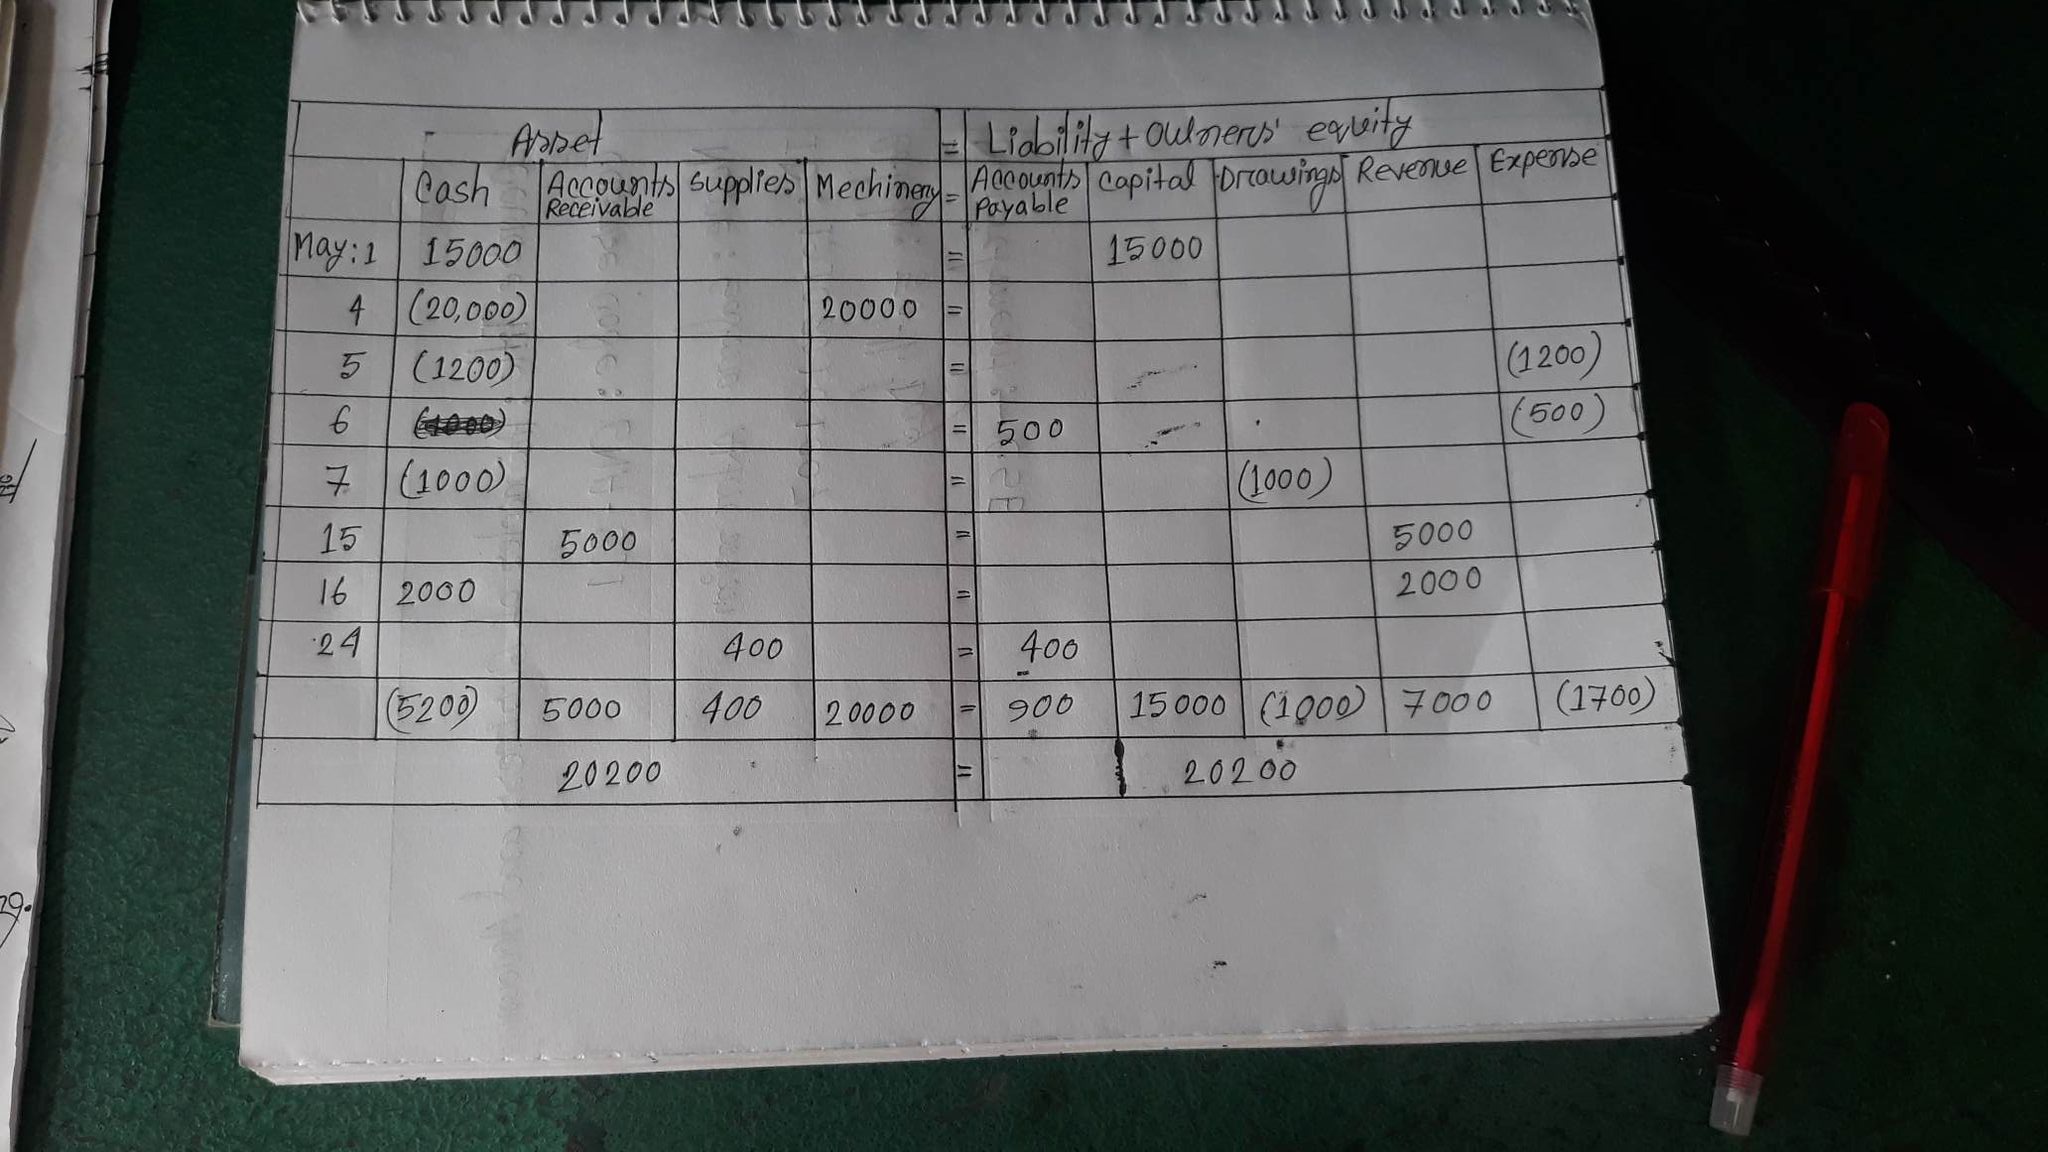 Asset = Liability + Owners' equity
Cash Accounts Receivable Supplies Mechinery = Accounts Payable Capital Drawings Revenue Expense
May:1 15000 = 15000
4 (20,000) 20000 =
5 (1200) = (1200)
6 = 500 (500)
7 (1000) = (1000)
15 5000 = 5000
16 2000 = 2000
24 400 = 400
(5200) 5000 400 20000 = 900 15000 (1000) 7000 (1700)
20200 = 20200
29.